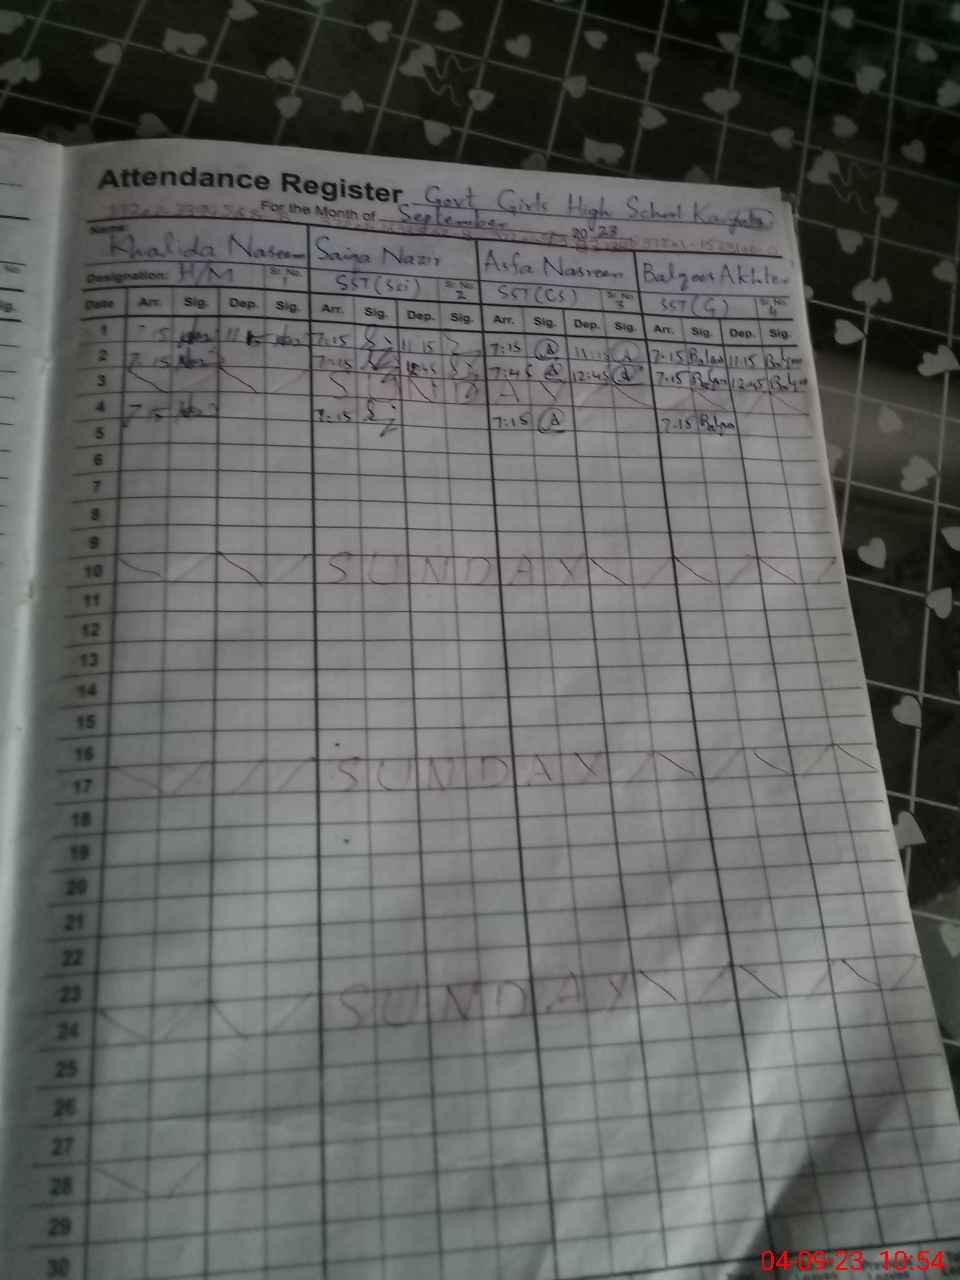 Attendance Register Govt Girls High School
For the Month of September 2023
Name: Khalida Naseem Saiqa Nazir Asfa Nasreen Balqees Akhter
Designation: H/M Sr. No. 1 SST(Sci) Sr. No. 2 SST(CS) Sr. No. 3 SST(G) Sr. No. 4
Date Arr. Sig. Dep. Sig. Arr. Sig. Dep. Sig. Arr. Sig. Dep. Sig. Arr. Sig. Dep. Sig.
1 7:15 11 15 7:15 11 15 7:15 11:15 7:15 11:15
2 7 15 7:15 12:45 7:45 12:45 7:15 12:45
3 SUNDAY
4 7 15 7:15 7:15 7:15
5
6
7
8
9
10 SUNDAY
11
12
13
14
15
16
17 SUNDAY
18
19
20
21
22
23
24 SUNDAY
25
26
27
28
29
30
04-09-23 10:54